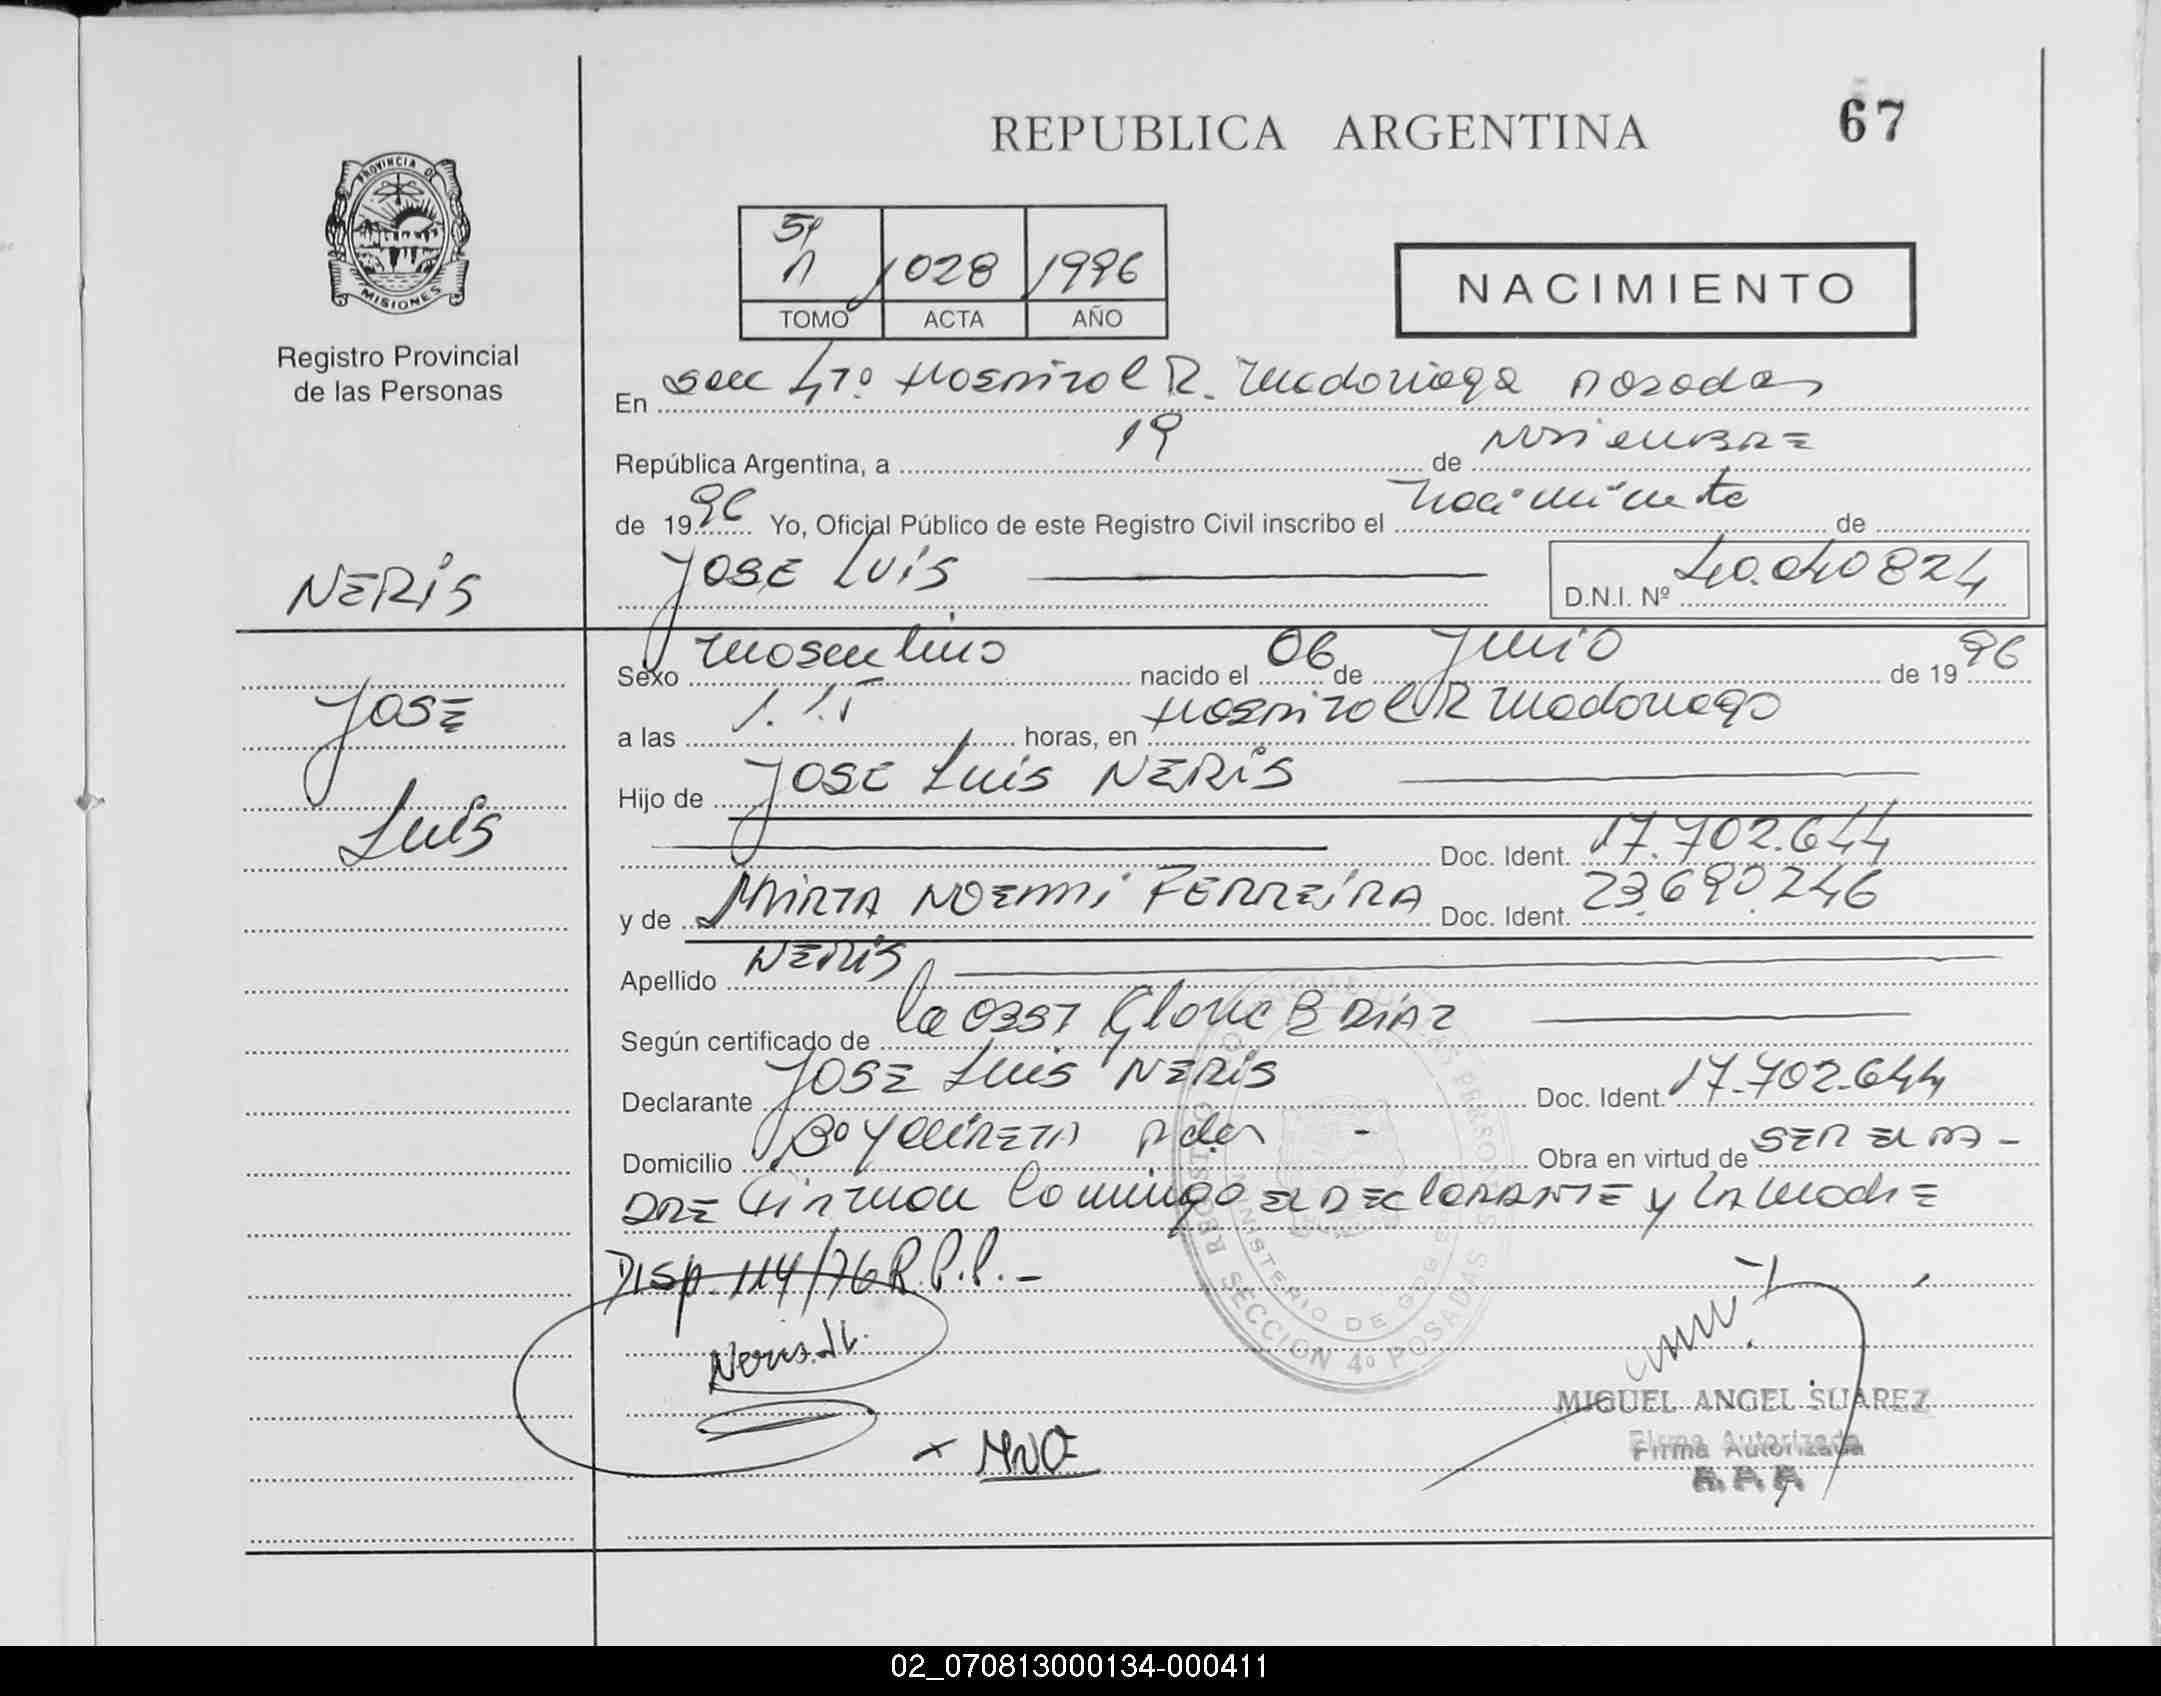 REPUBLICA ARGENTINA
67
PROVINCIA DE
MISIONES
Registro Provincial
de las Personas
1028 1996
TOMO ACTA AÑO
NACIMIENTO
En Hospital R. Madariaga Posadas
República Argentina, a 19 de NOVIEMBRE
de 1996 Yo, Oficial Público de este Registro Civil inscribo el nacimiento de
NERIS
JOSE LUIS
D.N.I. Nº 40.040824
Sexo masculino nacido el 06 de Junio de 1996
JOSE
a las horas, en Hospital R Madariaga
Hijo de JOSE Luis NERIS
Luis
Doc. Ident. 17.702.644
y de MIRTA NOEMI FERREIRA Doc. Ident. 23.690.246
Apellido NERIS
Según certificado de la OBST B DIAZ
Declarante JOSE Luis NERIS Doc. Ident. 17.702.644
Domicilio Bº YACIRETA Pdas - Obra en virtud de SER EL PA-
DRE Firman conmigo EL DECLARANTE y LA MADRE
Disp. 114/76 R.P.P.-
Neris. JL.
SECCION 4º POSADAS
MINISTERIO DE GOB
MIGUEL ANGEL SUAREZ
Firma Autorizada
02_070813000134-000411